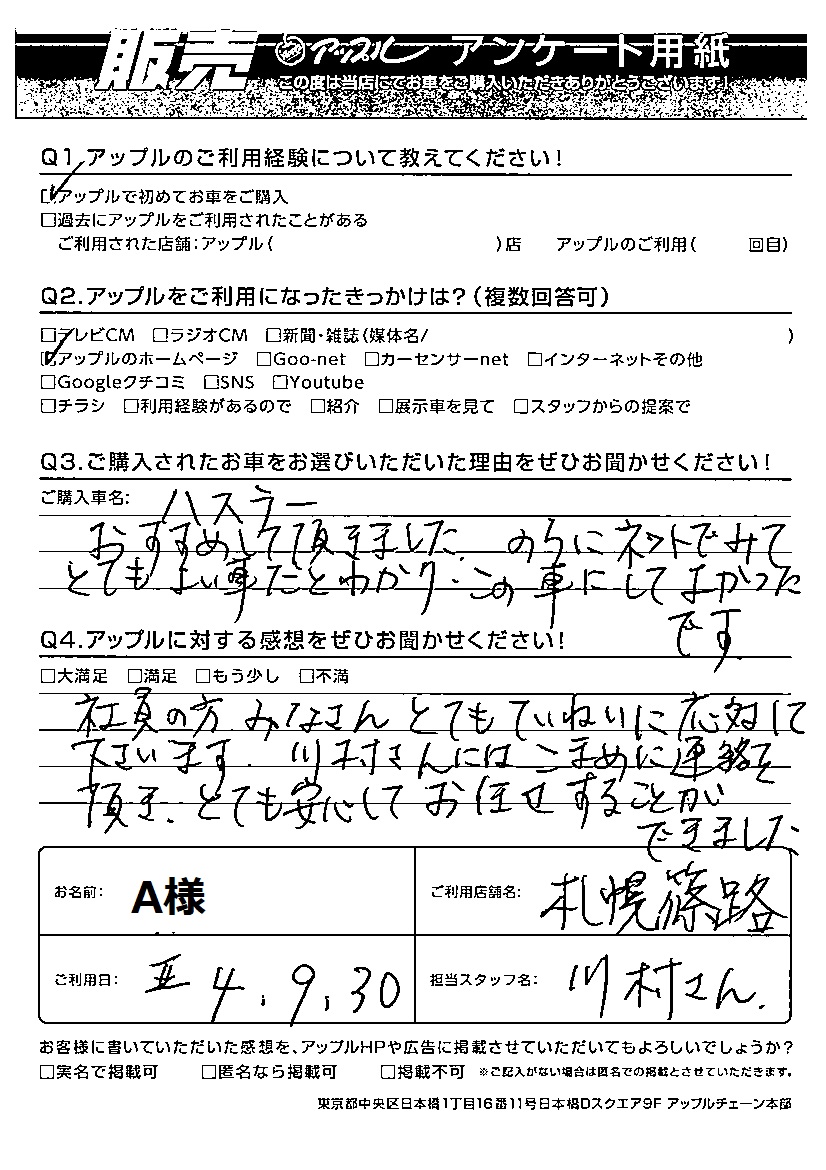 販売 アップル アンケート用紙
この度は当店にてお車をご購入いただきありがとうございます!
Q1.アップルのご利用経験について教えてください!
☑アップルで初めてお車をご購入
□過去にアップルをご利用されたことがある
ご利用された店舗:アップル( )店 アップルのご利用( 回目)
Q2.アップルをご利用になったきっかけは?(複数回答可)
□テレビCM □ラジオCM □新聞・雑誌(媒体名/ )
☑アップルのホームページ □Goo-net □カーセンサーnet □インターネットその他
□Googleクチコミ □SNS □Youtube
□チラシ □利用経験があるので □紹介 □展示車を見て □スタッフからの提案で
Q3.ご購入されたお車をお選びいただいた理由をぜひお聞かせください!
ご購入車名: ハスラー
おすすめして頂きました。のちにネットでみて
とてもよい車だとわかり、この車にしてよかった
です。
Q4.アップルに対する感想をぜひお聞かせください!
□大満足 □満足 □もう少し □不満
社員の方みなさんとてもていねいに応対して
下さいます。川村さんにはこまめに連絡を
頂き、とても安心してお任せすることが
できました
お名前: A様 ご利用店舗名: 札幌篠路
ご利用日: 4.9.30 担当スタッフ名: 川村さん.
お客様に書いていただいた感想を、アップルHPや広告に掲載させていただいてもよろしいでしょうか?
□実名で掲載可 □匿名なら掲載可 □掲載不可 ※ご記入がない場合は匿名での掲載とさせていただきます。
東京都中央区日本橋1丁目16番11号日本橋Dスクエア9F アップルチェーン本部